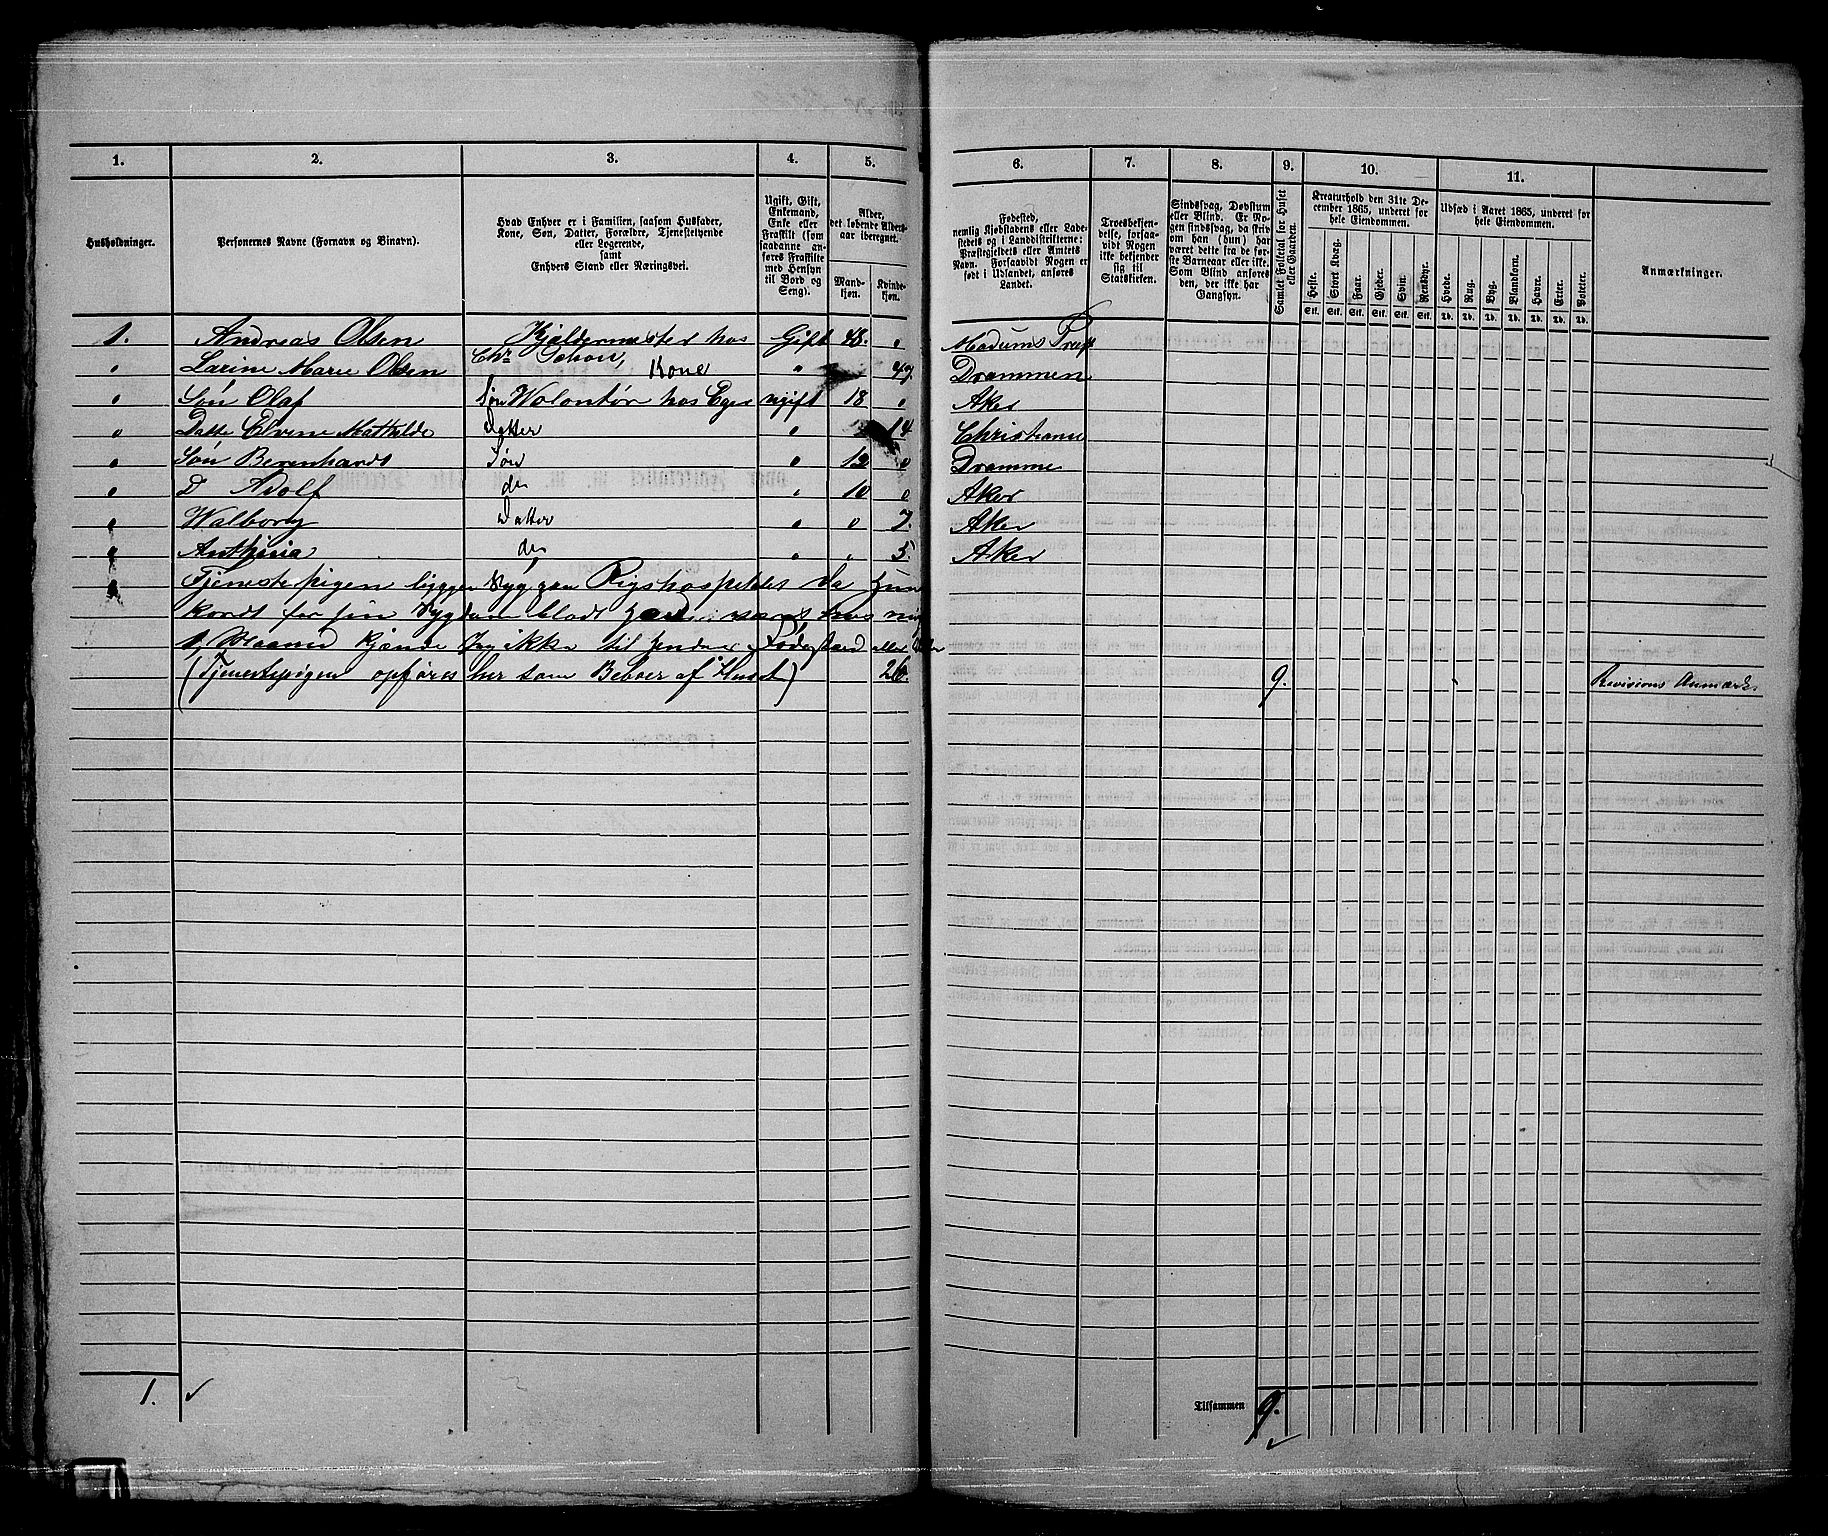 1. 2. 3. 4. 5. 6. 7. 8. 9. 10. 11.
Husholdninger.
Personernes Navne (Fornavn og Binavn).
Hvad Enhver er i Familien, saasom Husfader,
Kone, Søn, Datter, Forældre, Tjenestetyende
eller Logerende,
samt
Enhvers Stand eller Næringsvei.
Ugift, Gift,
Enkemand,
Enke eller
Fraskilt (som
saadanne an-
føres Fraskilte
med Hensyn
til Bord og
Seng).
Alder,
det løbende Alders-
aar iberegnet.
Mand-
kjøn.
Kvinde-
kjøn.
Fødested,
nemlig Kjøbstadens eller Lade-
stedets og i Landdistrikterne:
Præstegjeldets eller Amtets
Navn. Forsaavidt Nogen er
født i Udlandet, anføres
Landet.
Troesbekjen-
delse, forsaa-
vidt Nogen
ikke bekjender
sig til
Statskirken.
Sindssvag, Døvstum
eller Blind. Er No-
gen sindssvag, da skriv
om han (hun) har
været dette fra de før-
ste Barneaar eller ikke.
Som Blind anføres
den, der ikke har
Gangsyn.
Samlet Folketal for Huset
eller Gaarden.
Kreaturhold den 31te De-
cember 1865, underet for
hele Eiendommen.
Heste. Stort Kvæg. Faar. Gjeder. Svin. Rensdyr.
Stk. Stk. Stk. Stk. Stk. Stk.
Udsæd i Aaret 1865, underet for
hele Eiendommen.
Hvede. Rug. Byg. Blandkorn. Havre. Erter. Poteter.
Td. Td. Td. Td. Td. Td. Td.
Anmærkninger.
1. Andreas Olsen Kjeldermester hos Gift 48. " Modums Præst
Chr Schou,
" Larine Marie Olsen Kone " 47. Drammen
" Søn Olaf Søn Wolontør hos Eger ugift 18 " Aker
" Datte Elvene Mathilde Datter " 14 Christiania
" Søn Berenhardt Søn " 12 " Dramme
" D Adolf do " 10 " Aker
" Walborg Datter " " 7. Aker
" Anthinia do " " 5. Aker
Tjenestepigen ligger Syg paa Rigshospitalet da hun
kordt for sin Sygdom
1 Maaned kjender Jeg ikke til hendes Fødested eller
(Tjenestepigen opføres her som Beboer af Huset) 26. 9. Revisions Anmærk.
1.
Tilsammen 9.